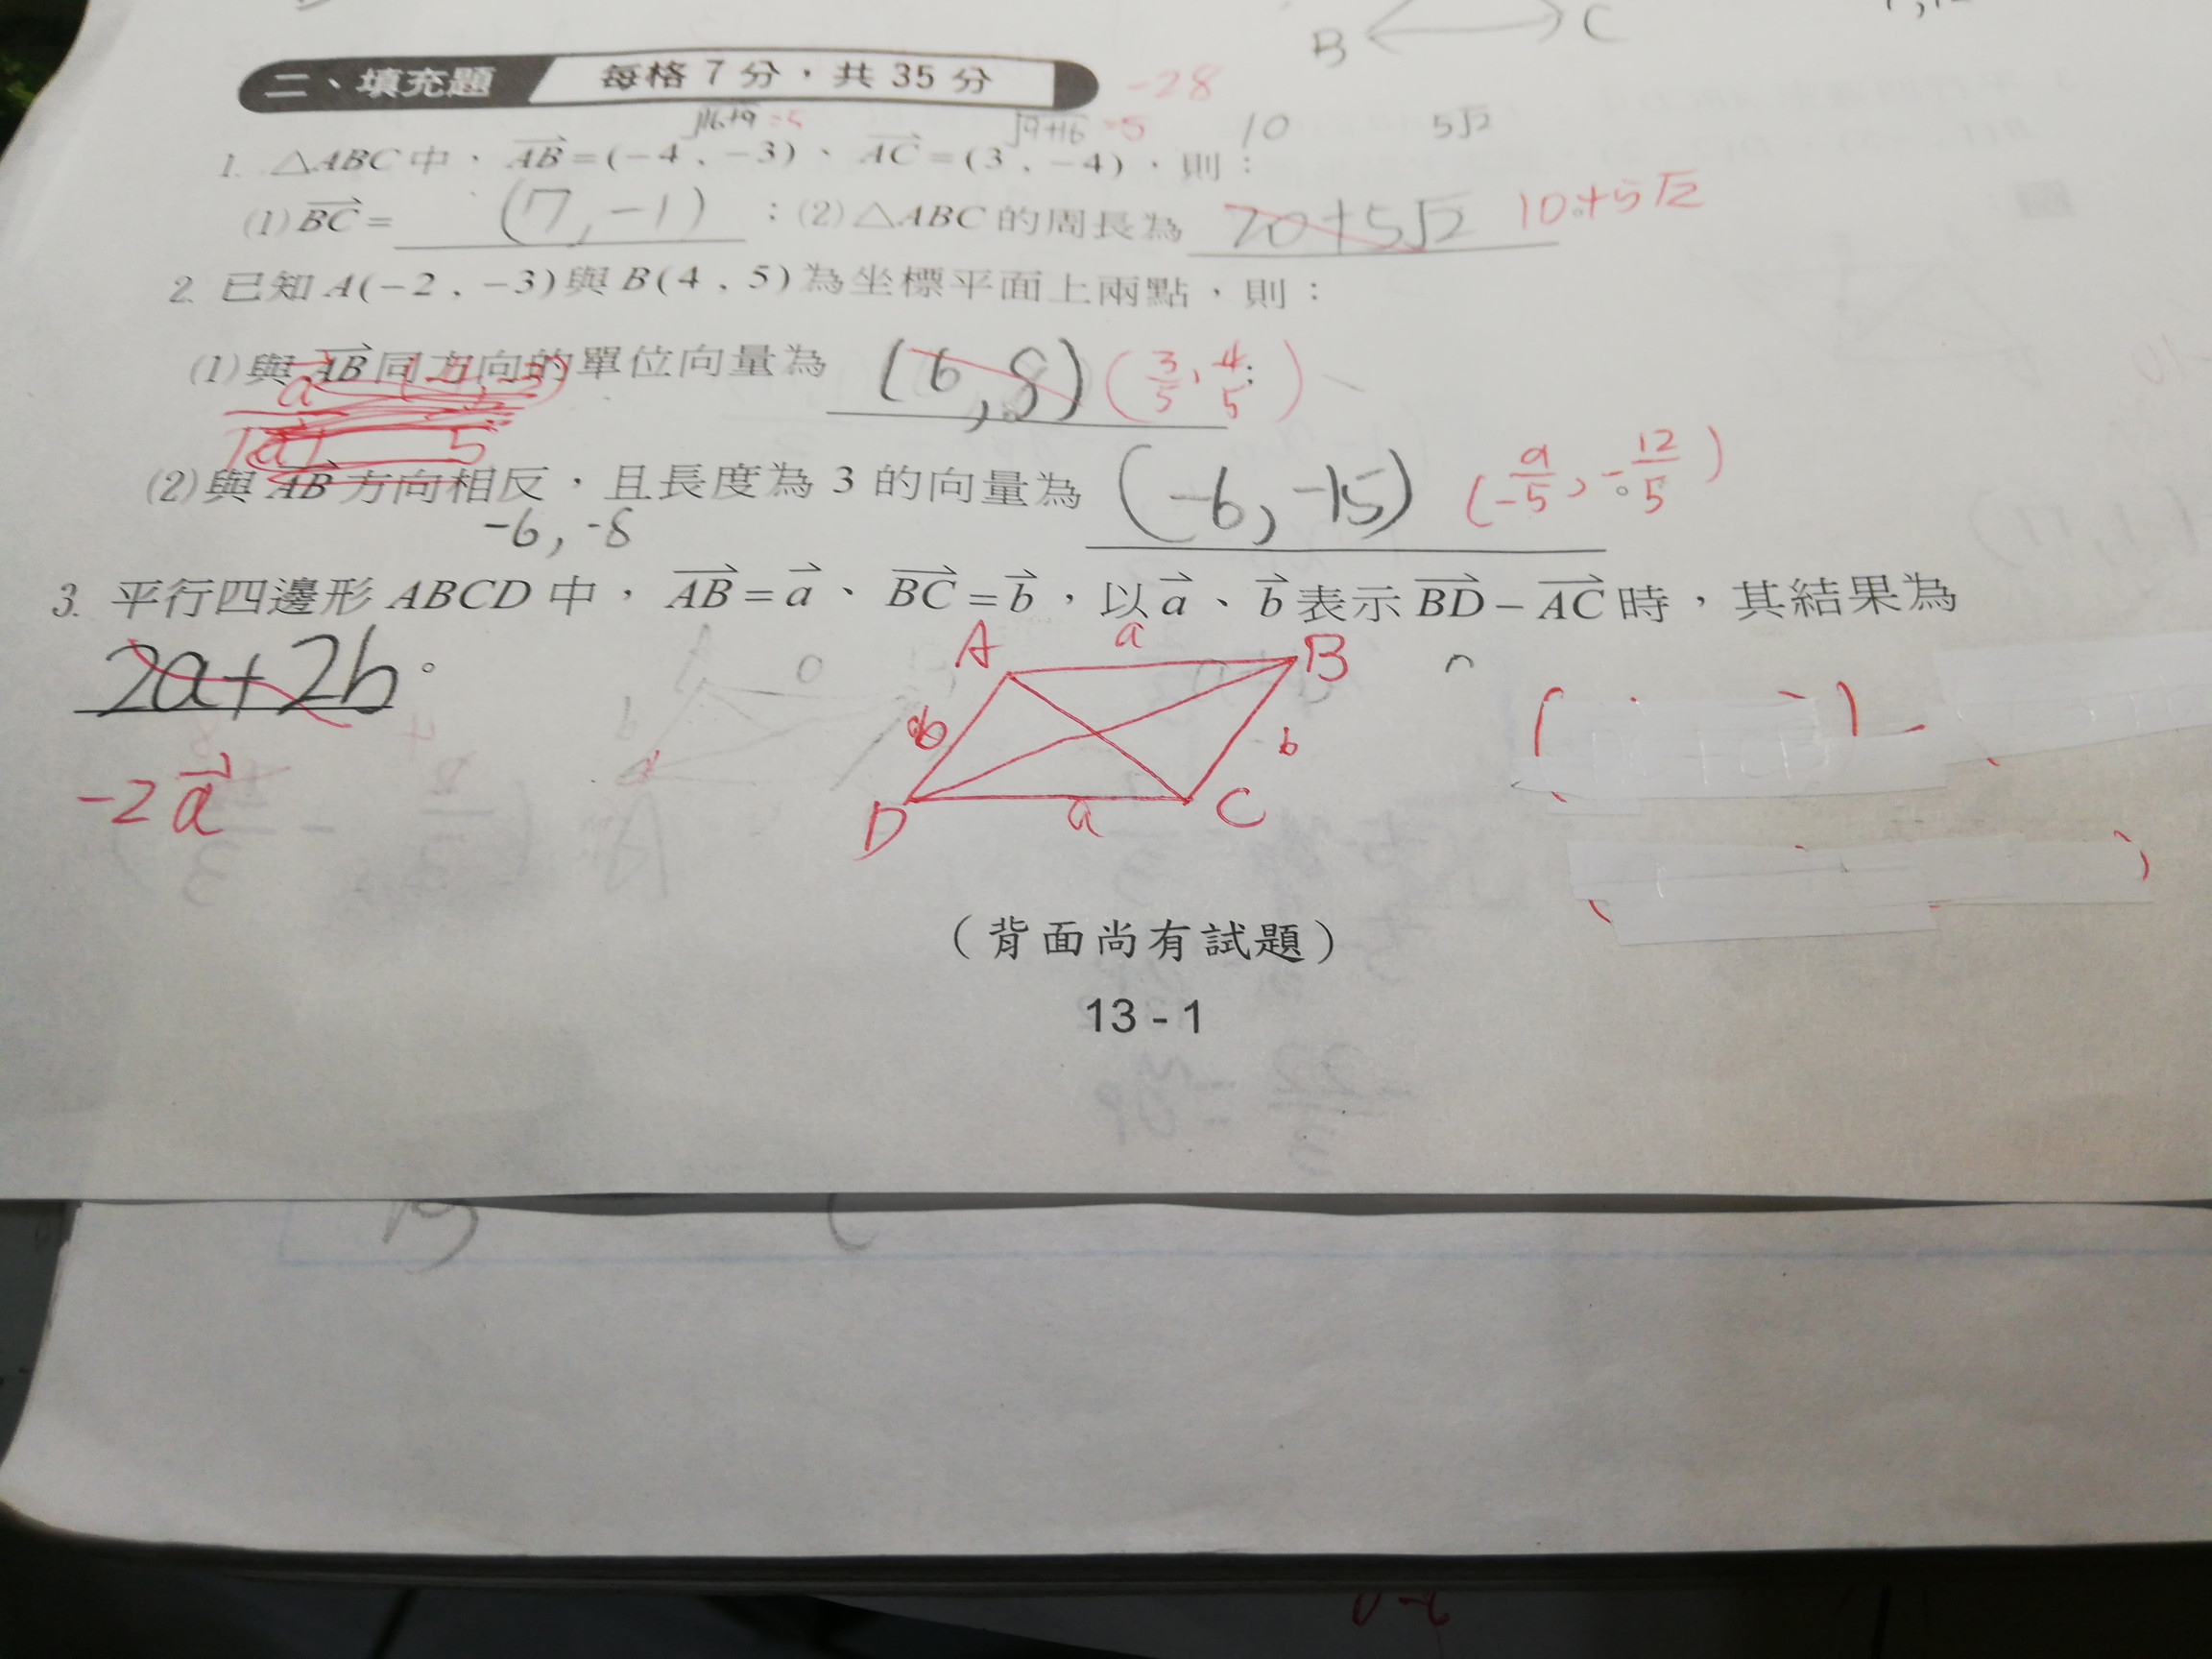 B C
二、填充題 每格 7 分，共 35 分 -28
√16+9 =5 √9+16 =5 10 5√2
1. △ABC 中、AB=(-4，-3)、AC=(3，-4)，則：
(1) BC= (7,-1) ；(2) △ABC 的周長為 20+5√2 10+5√2 。
2. 已知 A(-2，-3)與 B(4，5)為坐標平面上兩點，則：
(1)與 AB 同方向的單位向量為 (6,8) (3/5, 4/5) ；
a
|a| 5
(2)與 AB 方向相反，且長度為 3 的向量為 (-6,-15) (-9/5, -12/5) 。
-6, -8
3. 平行四邊形 ABCD 中，AB=a、BC=b，以 a、b 表示 BD-AC 時，其結果為
2a+2b 。
-2a
A a B
b b
D a C
（背面尚有試題）
13-1